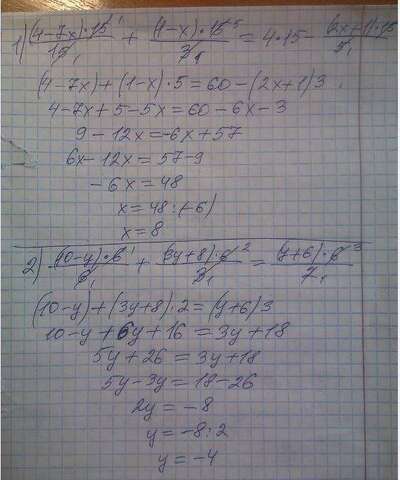 1) (4-7x)·15¹/15₁ + (1-x)·15⁵/3₁ = 4·15 - (2x+1)·15/5₁
(4-7x)+(1-x)·5=60-(2x+1)3
4-7x+5-5x=60-6x-3
9-12x=-6x+57
6x-12x=57-9
-6x=48
x=48:(-6)
x=8
2) (10-y)·6¹/6₁ + (3y+8)·6²/3₁ = (y+6)·6³/2₁
(10-y)+(3y+8)·2=(y+6)3
10-y+6y+16=3y+18
5y+26=3y+18
5y-3y=18-26
2y=-8
y=-8:2
y=-4